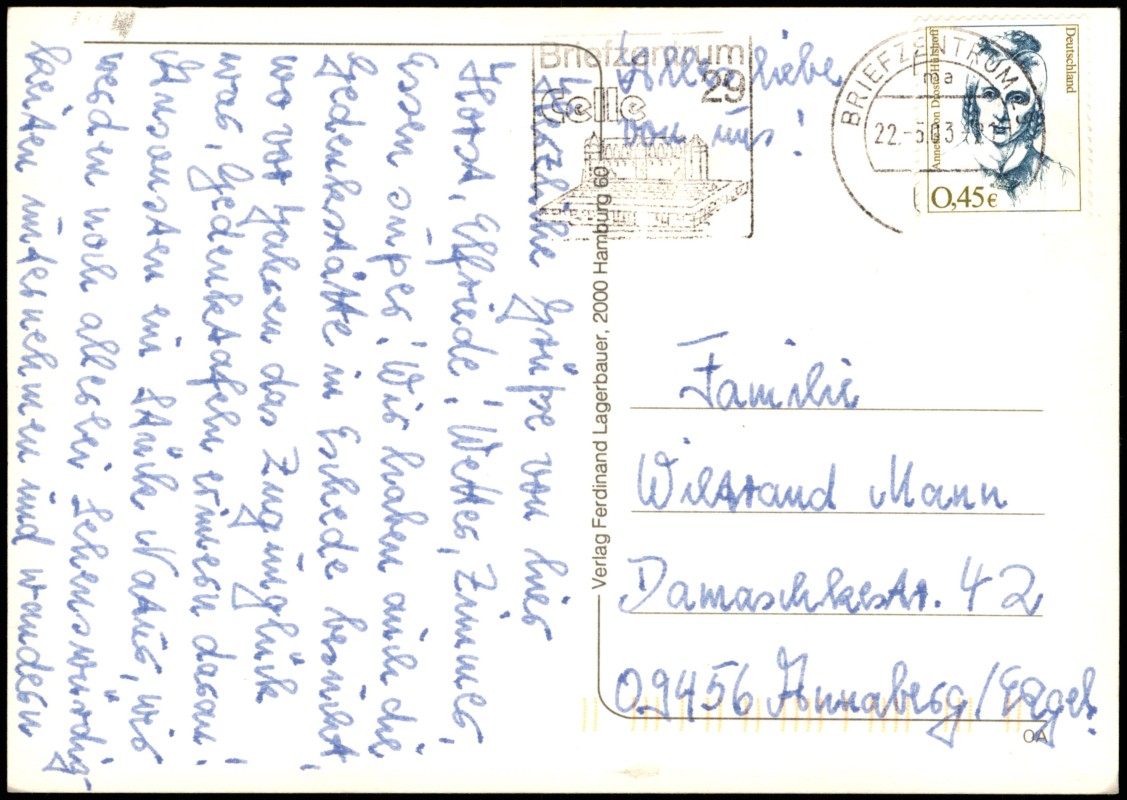 Herzliche Grüße von hier
Horst, Elfriede! Wetter, Zimmer,
Essen super! Wir haben auch die
Gedenkstätte in Eschede besucht,
wo vor Jahren das Zugunglück
war, Gedenktafeln erinnern daran!
Ansonsten ein Stück Natur, wir
werden noch allerlei Sehenswürdig-
keiten unternehmen und wandern
Alles liebe
von uns!
Briefzentrum
29
Celle
BRIEFZENTRUM
ma
22.-5.03
Deutschland
Annette von Droste-Hülshoff
0,45€
Verlag Ferdinand Lagerbauer, 2000 Hamburg 60
Familie
Wiltraud Mann
Damaschkestr. 42
09456 Annaberg/Erzgeb.
OA